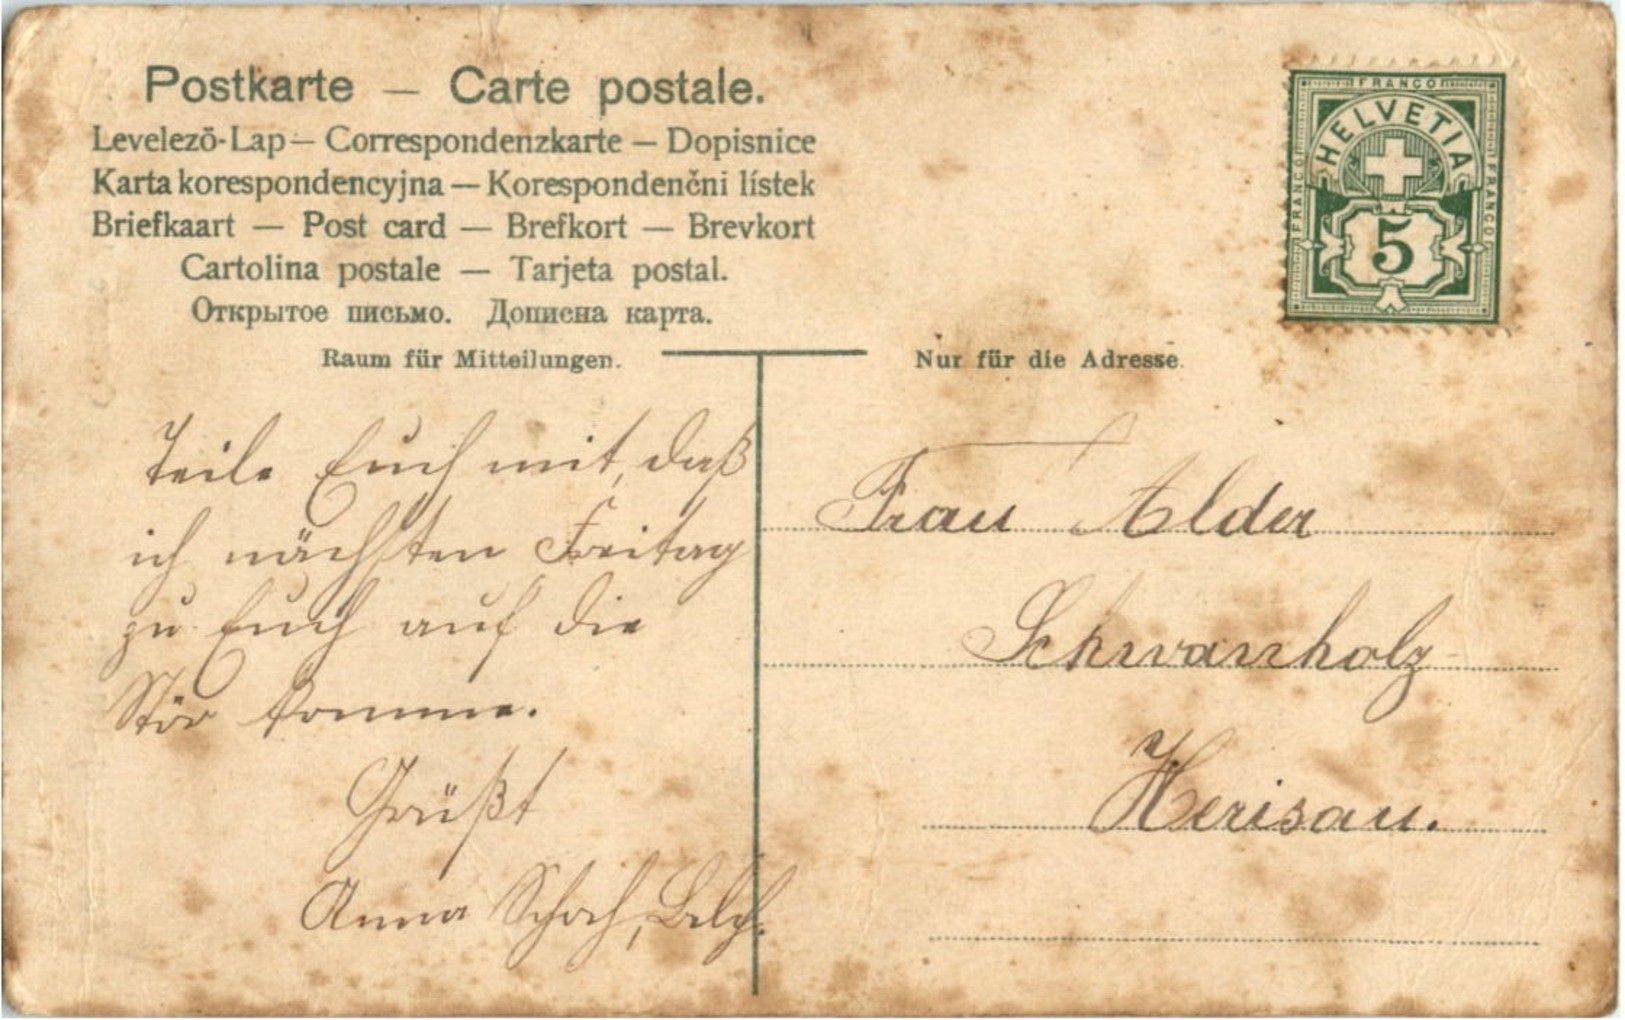 Postkarte — Carte postale.
Levelező-Lap — Correspondenzkarte — Dopisnice
Karta korespondencyjna — Korespondenční lístek
Briefkaart — Post card — Brefkort — Brevkort
Cartolina postale — Tarjeta postal.
Открытое письмо. Дописна карта.
Raum für Mitteilungen.
Nur für die Adresse.
FRANCO
FRANCO
FRANCO
HELVETIA
5
Teile Euch mit, daß
ich nächsten Freitag
zu Euch auf die
Stör komme.
Grüßt
Anna Schoch,
Frau Alder
Schwanholz
Herisau.